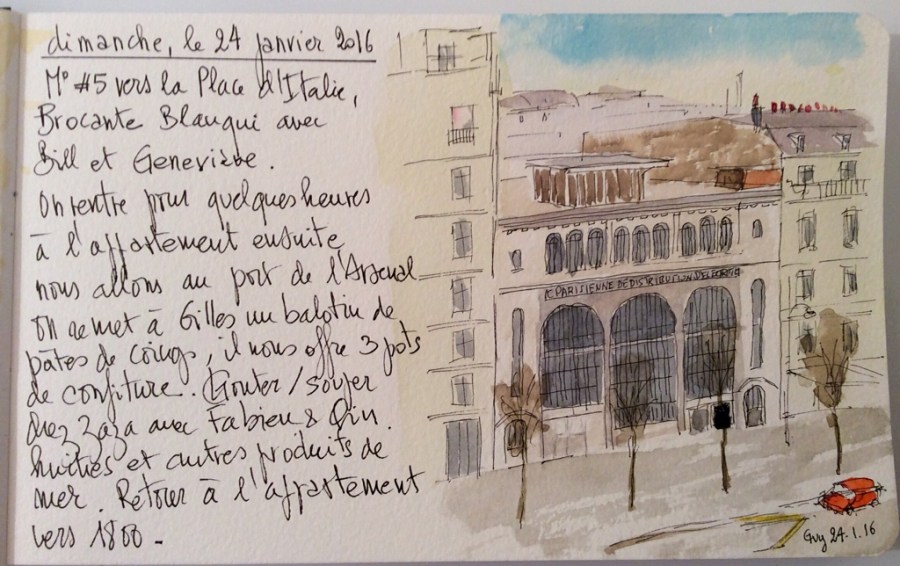 dimanche, le 24 janvier 2016
M° #5 vers la Place d'Italie,
Brocante Blanqui avec
Bill et Geneviève.
On rentre pour quelques heures
à l'appartement ensuite
nous allons au port de l'Arsenal
On remet à Gilles un balotin de
pâtes de coings, il nous offre 3 pots
de confiture. Gouter/souper
chez Zaza avec Fabien & Qin.
huitres et autres produits de
mer. Retour à l'appartement
vers 1800 -
PARISIENNE DE DISTRIBUTION D'ELECTRICITE
Guy 24.1.16